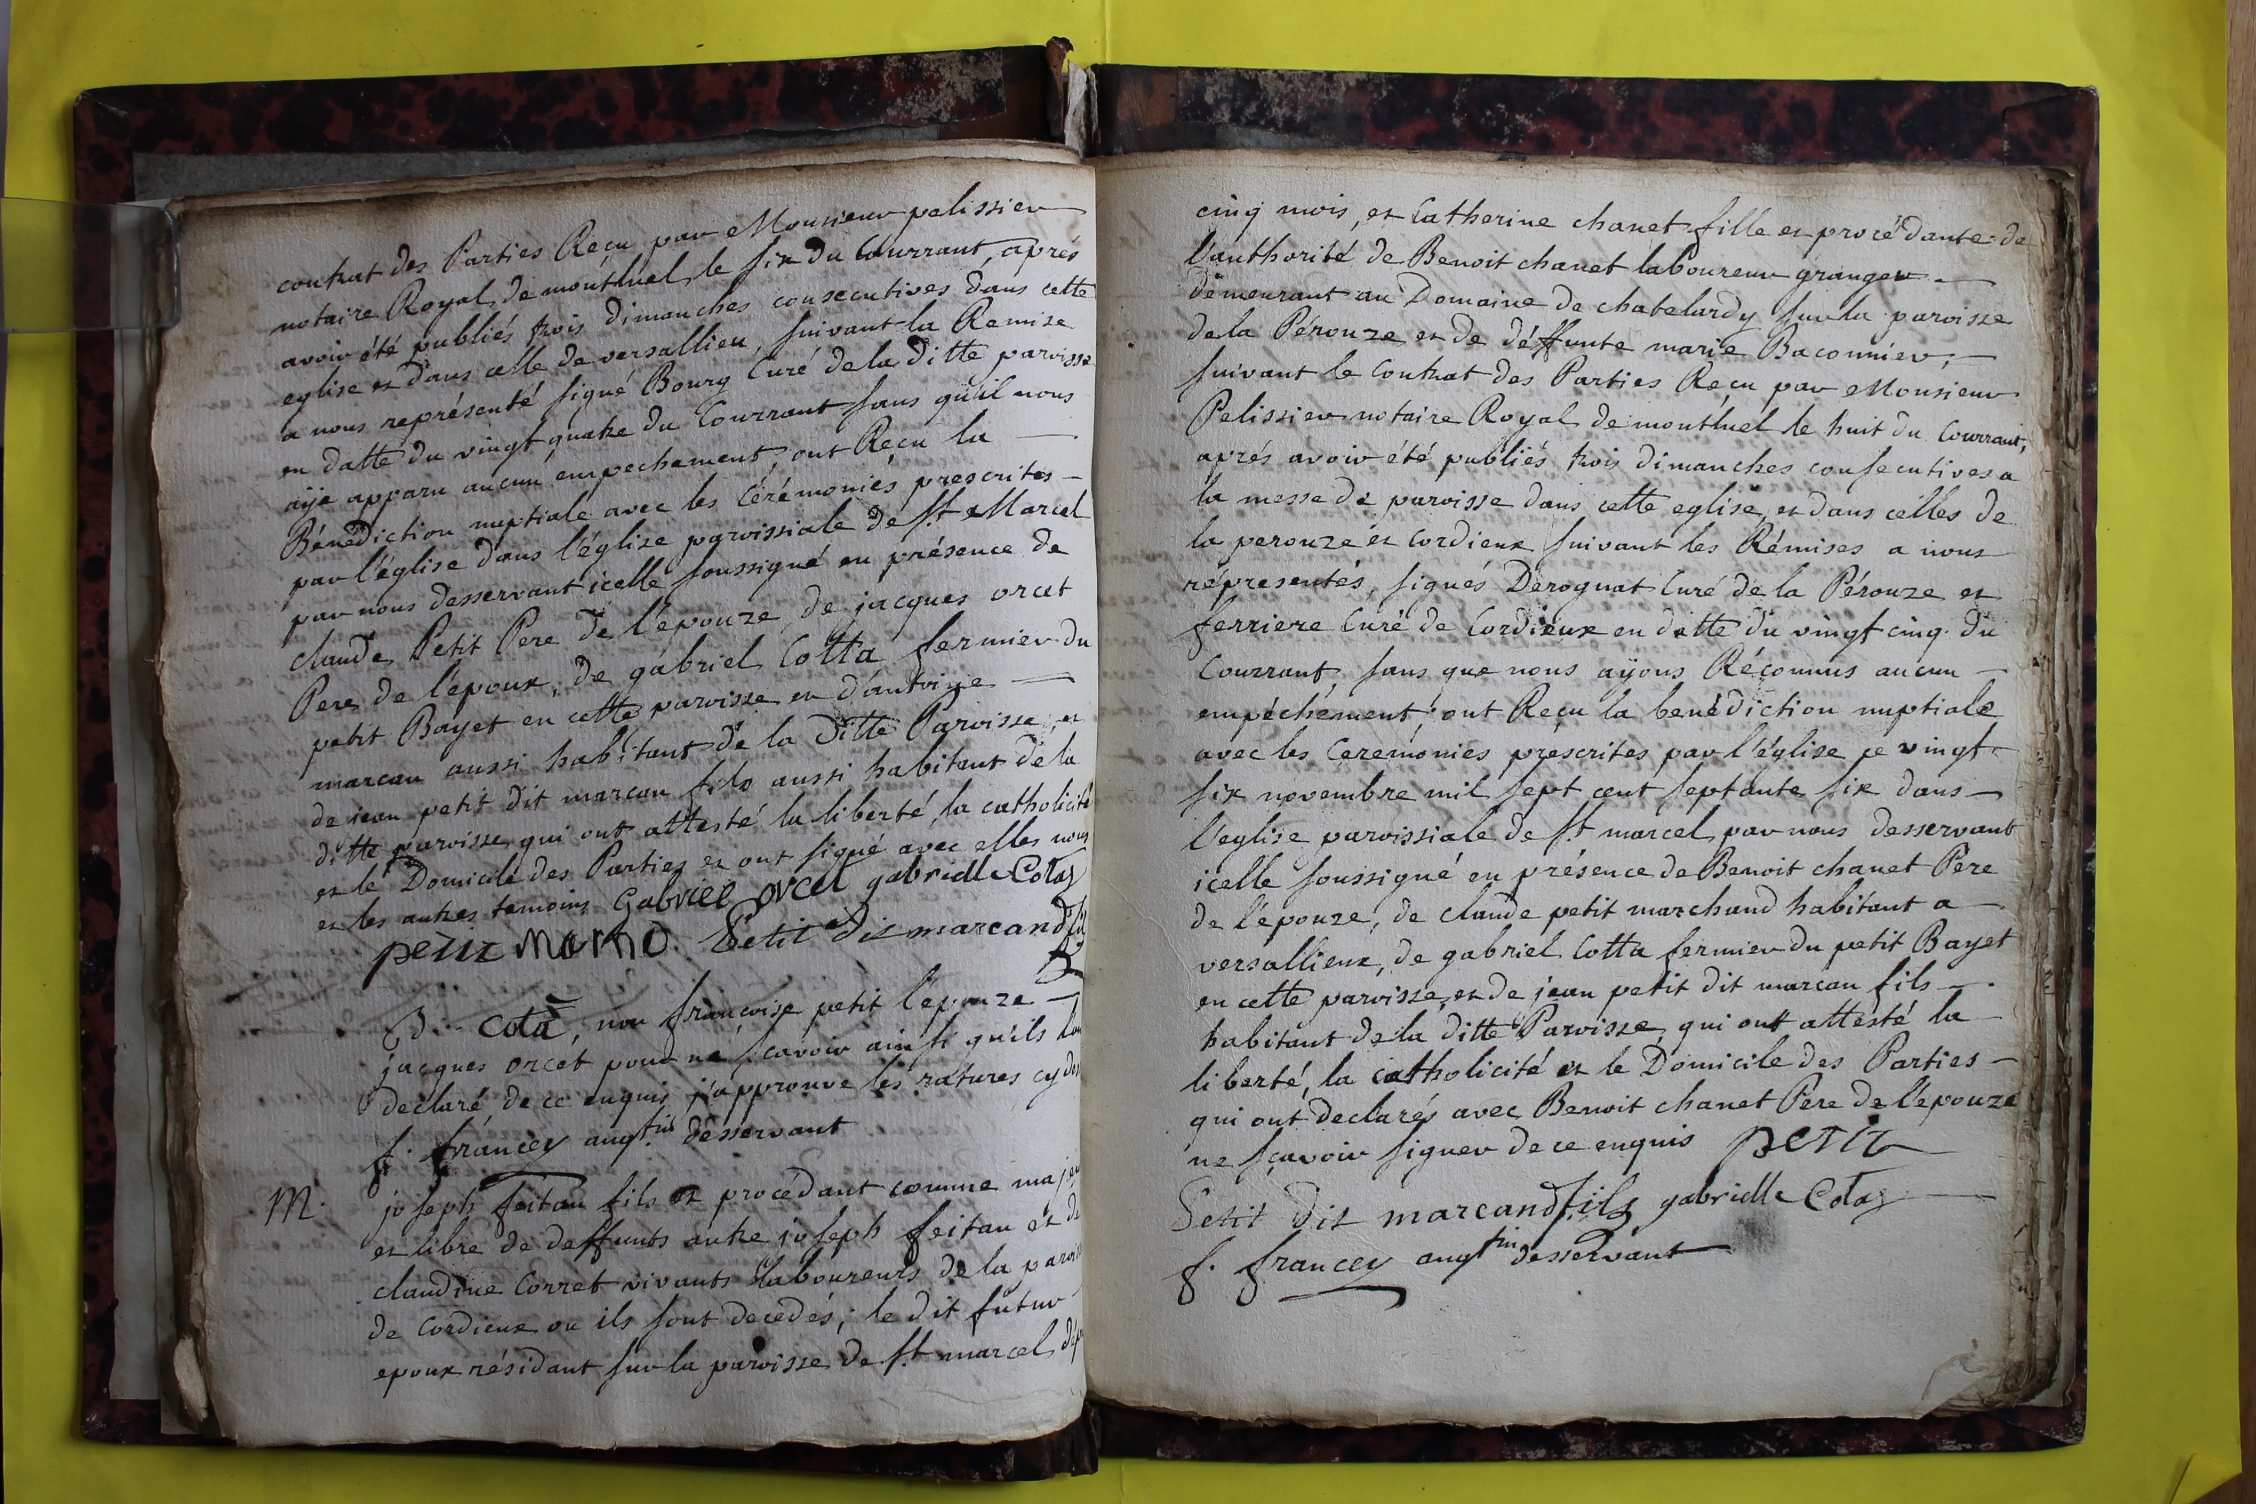 contrat des Parties Reçu par Monsieur pelissier
notaire Royal de montluel le six du Courrant, aprés
avoir été publiés trois dimanches consecutives dans cette
eglise et dans celle de versallieu, suivant la Remise
a nous représenté signé Bourg Curé de la ditte paroisse
en datte du vingt quatre du Courrant sans qu'il nous
aÿe apparu aucun empechement, ont Reçu la
Bénédiction nuptiale avec les Cérémoniés prescrites
par l'église dans l'église paroissiale de st Marcel
par nous desservant icelle soussigné en présence de
claude Petit Pere de l'epouze, de jacques orcet
Pere de l'epoux, de gabriel Cotta fermier du
petit Bayet en cette paroisse et d'antoine
marcau aussi habitant de la ditte Paroisse, et
de jean petit dit marcau fils aussi habitant de la
ditte paroisse qui ont attesté la liberté, la catholicité
et le Domicile des Parties et ont signé avec elles nous
et les autres temoins Gabriel orcet gabrielle Cotaz
petit Petit dit marcand fils
B. Cota, non françoise petit l'epouze
jacques orcet pour ne sçavoir ainsi qu'ils l'on
declaré, de ce enquis j'approuve les ratures cy des
f. francey augtin desservant
M. joseph feitau fils et procédant comme majeur
et libre de deffunts autre joseph feitau et de
claudine Corret vivants Laboureurs de la paroisse
de Cordieux ou ils sont decedés; le dit futur
epoux résidant sur la paroisse de st marcel dépuis
cinq mois, et Catherine chanet fille et procédante de
l'authorité de Benoit chanet laboureur granger
demeurant au Domaine de chatelardy sur la paroisse
de la Pérouze et de déffunte marie Baconnier,
suivant le Contrat des Parties Reçu par Monsieur
Pelissier notaire Royal de montluel le huit du Courrant,
aprés avoir été publiés trois dimanches consecutives a
la messe de paroisse dans cette eglise, et dans celles de
la perouze et Cordieux suivant les Rémises a nous
répresentés, signés Derognat Curé de la Pérouze et
ferriere Curé de Cordieux en datte du vingt cinq du
Courrant, sans que nous aÿons Réconnus aucun
empéchément, ont Reçu la benédiction nuptiale
avec les Ceremonies préscrites par l'église ce vingt
six novembre mil sept cent septante six dans
l'eglise paroissiale de st marcel par nous desservant
icelle soussigné en présence de Benoit chanet Pére
de l'épouze, de claude petit marchand habitant a
versallieux, de gabriel Cotta fermier du petit Bayet
en cette paroisse, et de jean petit dit marcau fils
habitant de la ditte Paroisse, qui ont attésté la
liberté, la catholicité et le Domicile des Parties
qui ont declarés avec Benoit chanet Pére de l'épouze
ne sçavoir signer de ce enquis petit
Petit dit marcand fils gabrielle Cotaz
f. francey augtin desservant